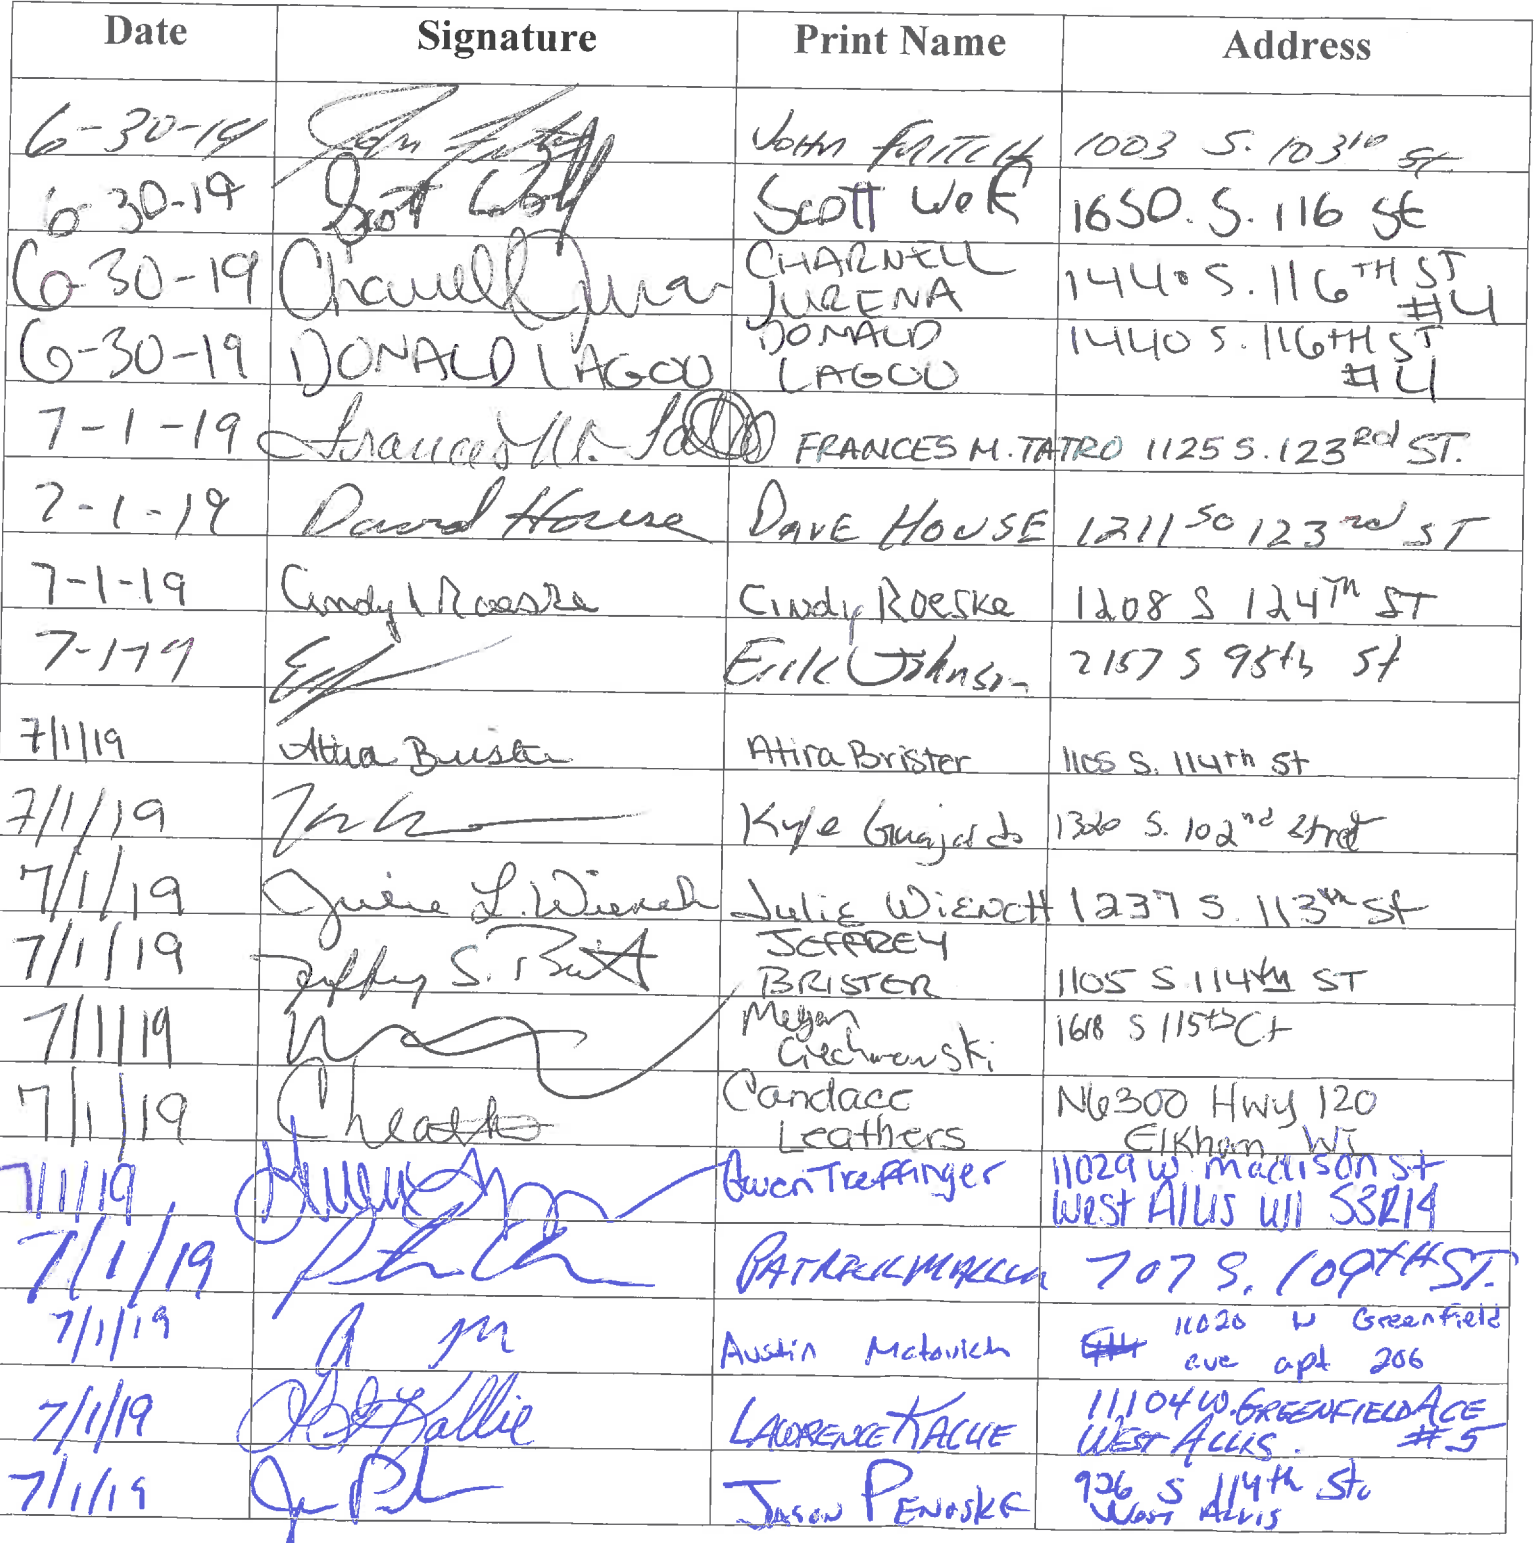 Date Signature Print Name Address
6-30-19 John Fritch JOHN FRITCH 1003 S. 103RD St
6-30-19 Scott Wolf Scott Wolf 1650. S. 116 St
6-30-19 Charnell Jurena CHARNELL JURENA 1440 S. 116TH ST #4
6-30-19 DONALD LAGOU DONALD LAGOU 1440 S. 116TH ST #4
7-1-19 Frances M. Tatro FRANCES M. TATRO 1125 S. 123Rd ST.
7-1-19 David House DAVE HOUSE 1211 SO 123rd ST
7-1-19 Cindy Roeske Cindy Roeske 1208 S 124Th ST
7-1-19 Erik Johnson 2157 S 95th St
7/1/19 Atira Brister Atira Brister 1105 S. 114th St
7/1/19 Kyle Guajardo 1320 S. 102nd Street
7/1/19 Julie L. Wiench Julie WIENCH 1237 S. 113th St
7/1/19 Jeffrey S. JEFFREY BRISTER 1105 S 114th ST
7/1/19 Megan 1618 S 115th Ct
7/1/19 Candace Leathers N6300 Hwy 120 Elkhorn WI
7/1/19 Gwen Treffinger 11029 W. Madison St West Allis WI 53214
7/1/19 PATRICK 707 S. 109TH ST.
7/1/19 A M Austin Matovich 11020 W Greenfield ave apt 206
7/1/19 Kallie LAWRENCE KALLIE 11104 W. GREENFIELD AVE WEST ALLIS. #5
7/1/19 JASON PENOSKE 926 S 114th St. West Allis